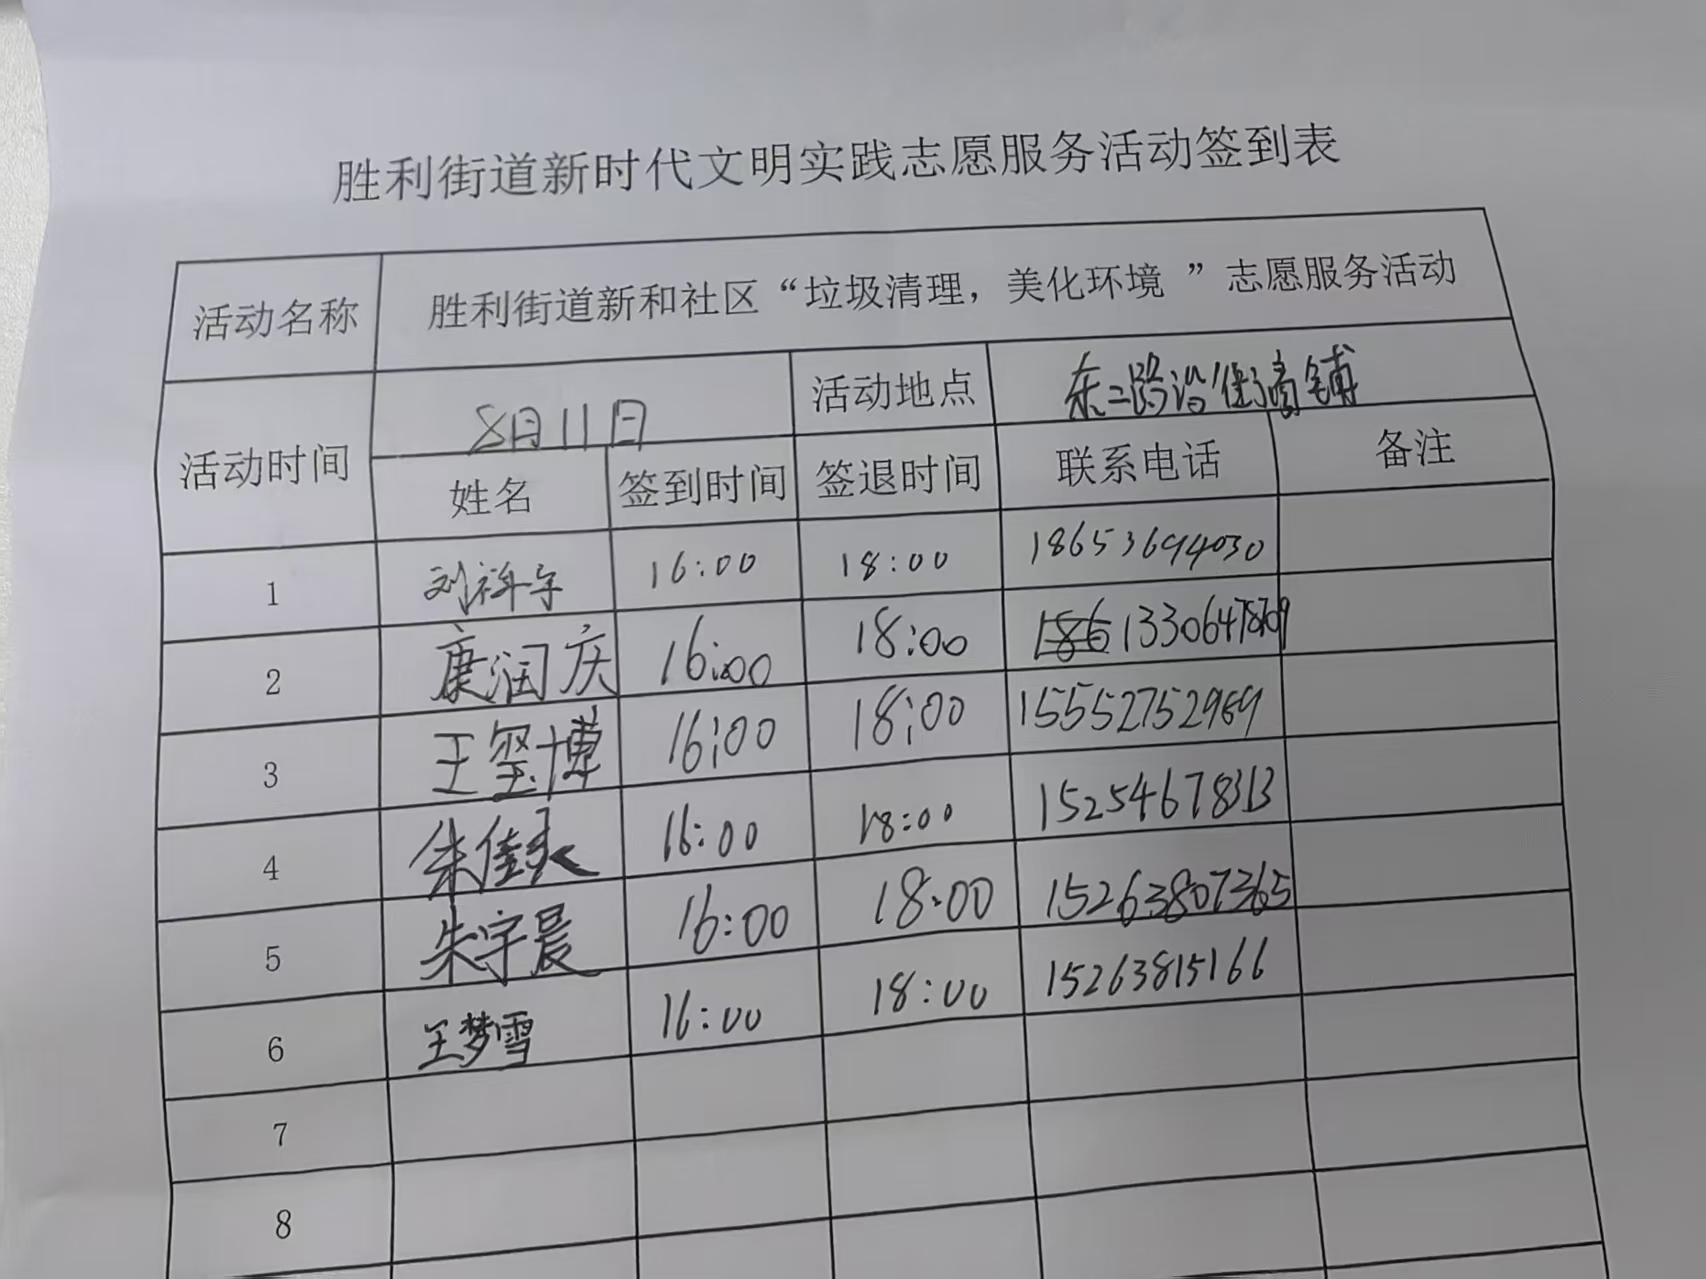 胜利街道新时代文明实践志愿服务活动签到表
活动名称 胜利街道新和社区“垃圾清理，美化环境 ”志愿服务活动
活动时间 8月11日 活动地点 东二路沿街商铺
姓名 签到时间 签退时间 联系电话 备注
1 刘祥宇 16:00 18:00 18653694030
2 康润庆 16:00 18:00 13306478709
3 王玺博 16:00 18:00 15552752969
4 朱佳 16:00 18:00 15254678313
5 朱宇晨 16:00 18:00 15263807365
6 王梦雪 16:00 18:00 15263815166
7
8